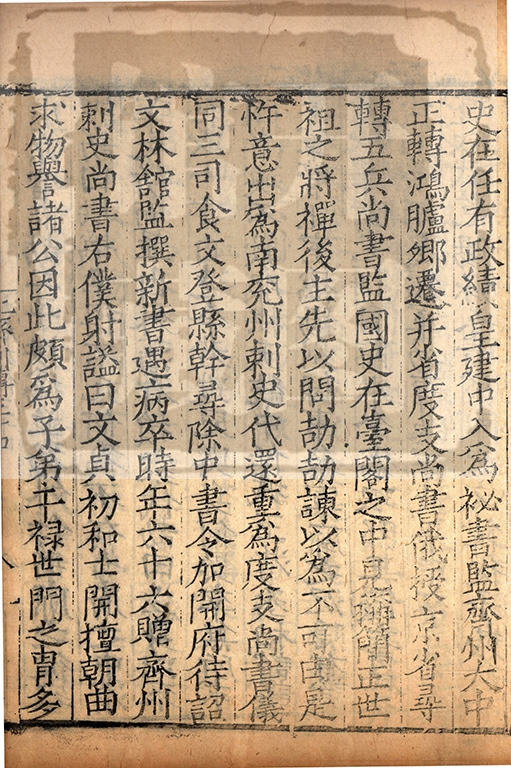 史在任有政績皇建中入為祕書監齊州大中
正轉鴻臚卿遷并省度支尚書俄授京省尋
轉五兵尚書監國史在臺閣之中見稱簡正世
祖之將禪後主先以問劼劼諫以為不可由是
忤意出為南兖州刺史代還重為度支尚書儀
同三司食文登縣幹尋除中書令加開府待詔
文林舘監撰新書遇病卒時年六十六贈齊州
刺史尚書右僕射謚曰文貞初和士開擅朝曲
求物譽諸公因此頗為子第干禄世門之胄多
八